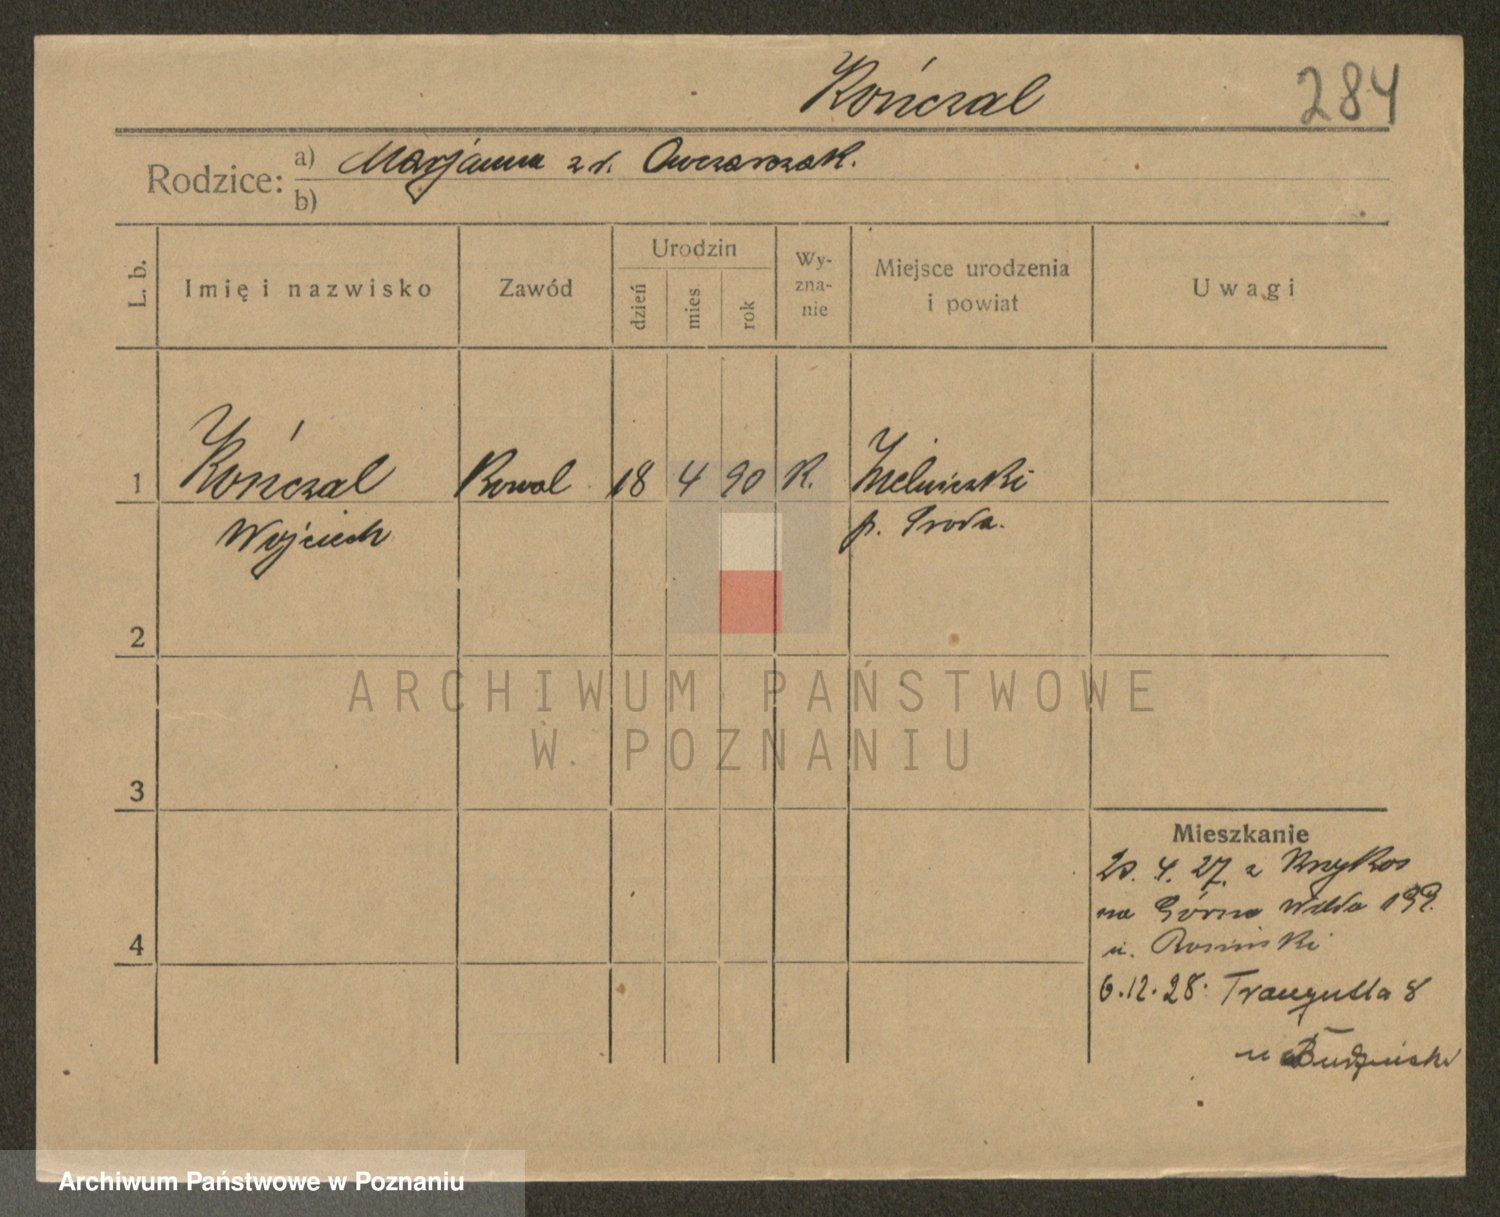 Kończal
284
Rodzice:
a) Marjanna z d. Owczarczak.
b)
L. b.
Imię i nazwisko
Zawód
Urodzin
dzień
mies.
rok
Wy-
zna-
nie
Miejsce urodzenia
i powiat
Uwagi
1
Kończal
Kowal
18
4
90
K.
Mieszkanie
Wojciech
p. Środa.
2
ARCHIWUM PAŃSTWOWE
W POZNANIU
3
20. 4. 27. z Krzykos
na Górna Wilda 199.
u. Rosiński
4
6.12.28. Traugutta 8
u Budziński
Archiwum Państwowe w Poznaniu